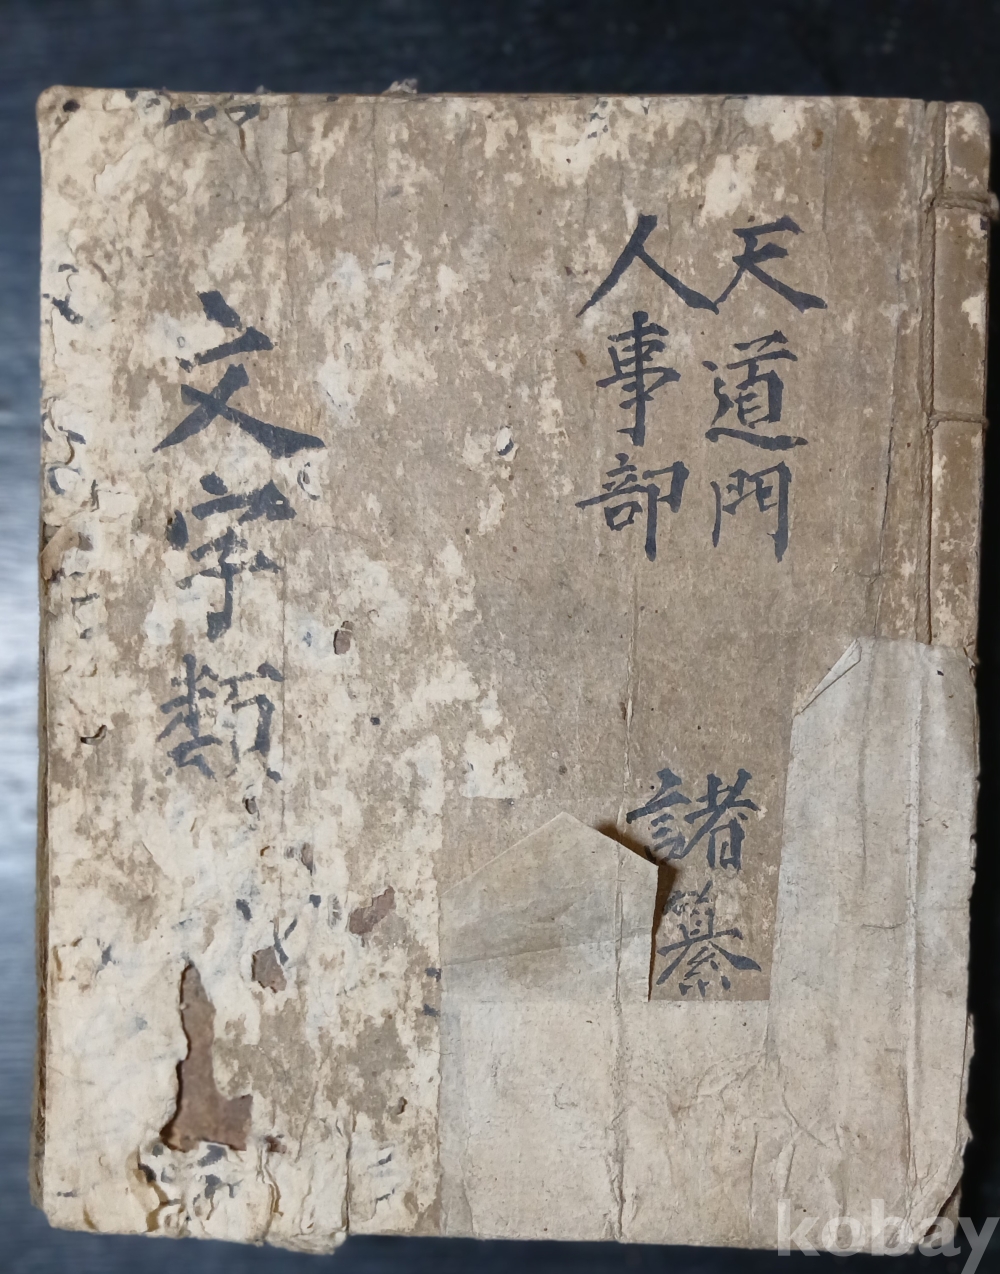 天道門
人事部
諸纂
文字類
kobay